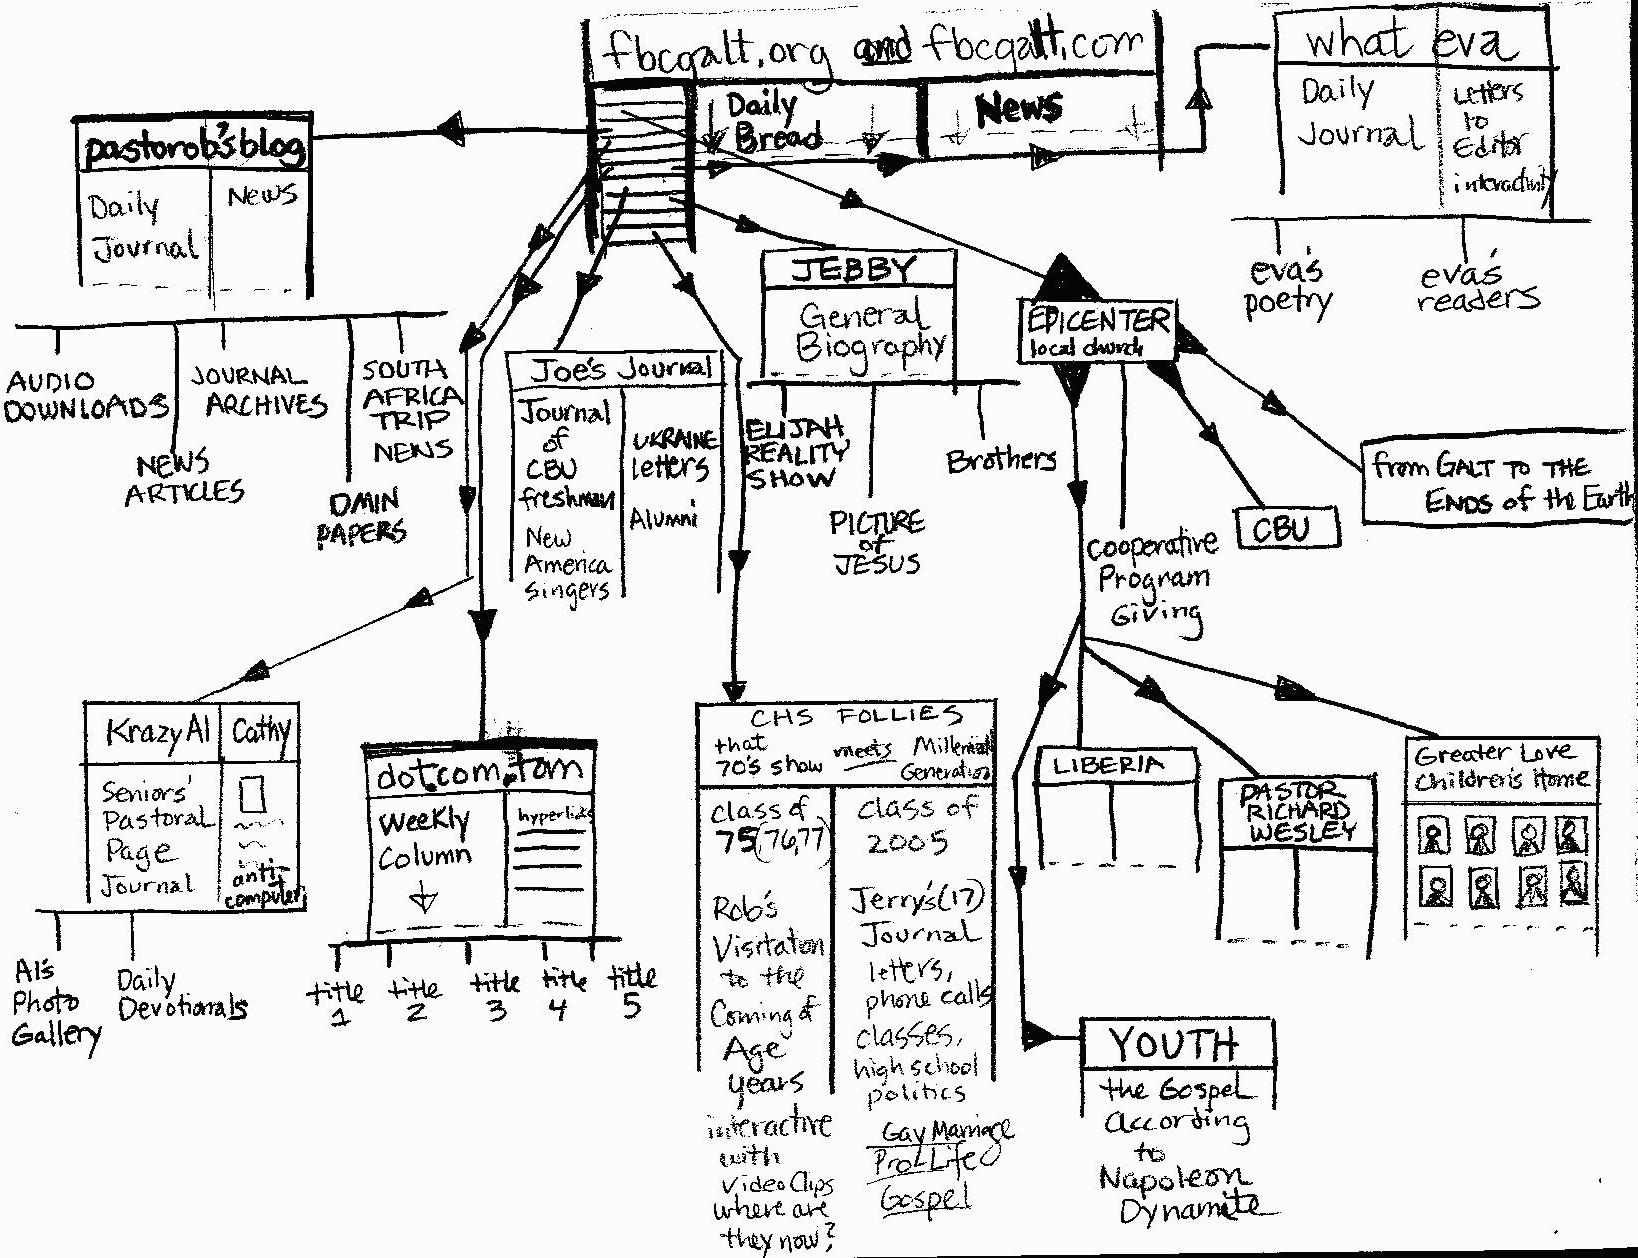 fbcgalt.org and fbcgalt.com
Daily
Bread
News
what eva
Daily
Journal
Letters
to
Editor
interactivity
eva's
poetry
eva's
readers
pastorob's blog
Daily
Journal
News
AUDIO
DOWNLOADS
NEWS
ARTICLES
JOURNAL
ARCHIVES
DMIN
PAPERS
SOUTH
AFRICA
TRIP
NEWS
Joe's Journal
Journal
of
CBU
freshman
New
America
Singers
UKRAINE
letters
Alumni
JEBBY
General
Biography
ELIJAH
REALITY
SHOW
PICTURE
of
JESUS
Brothers
EPICENTER
local church
Cooperative
Program
Giving
CBU
from GALT TO THE
ENDS of the Earth
Krazy Al
Cathy
Seniors'
Pastoral
Page
Journal
anti-
computer
Al's
Photo
Gallery
Daily
Devotionals
dotcom.tom
Weekly
Column
hyperlinks
title
1
title
2
title
3
title
4
title
5
CHS FOLLIES
that
70's show
meets
Millennial
Generation
class of
75(76,77)
Rob's
Visitation
to the
Coming of
Age
years
interactive
with
Video Clips
where are
they now?
class of
2005
Jerry's(17)
Journal
letters,
phone calls
classes,
high school
politics
Gay Marriage
Pro-Life
Gospel
LIBERIA
PASTOR
RICHARD
WESLEY
Greater Love
Children's Home
YOUTH
the Gospel
According
to
Napoleon
Dynamite